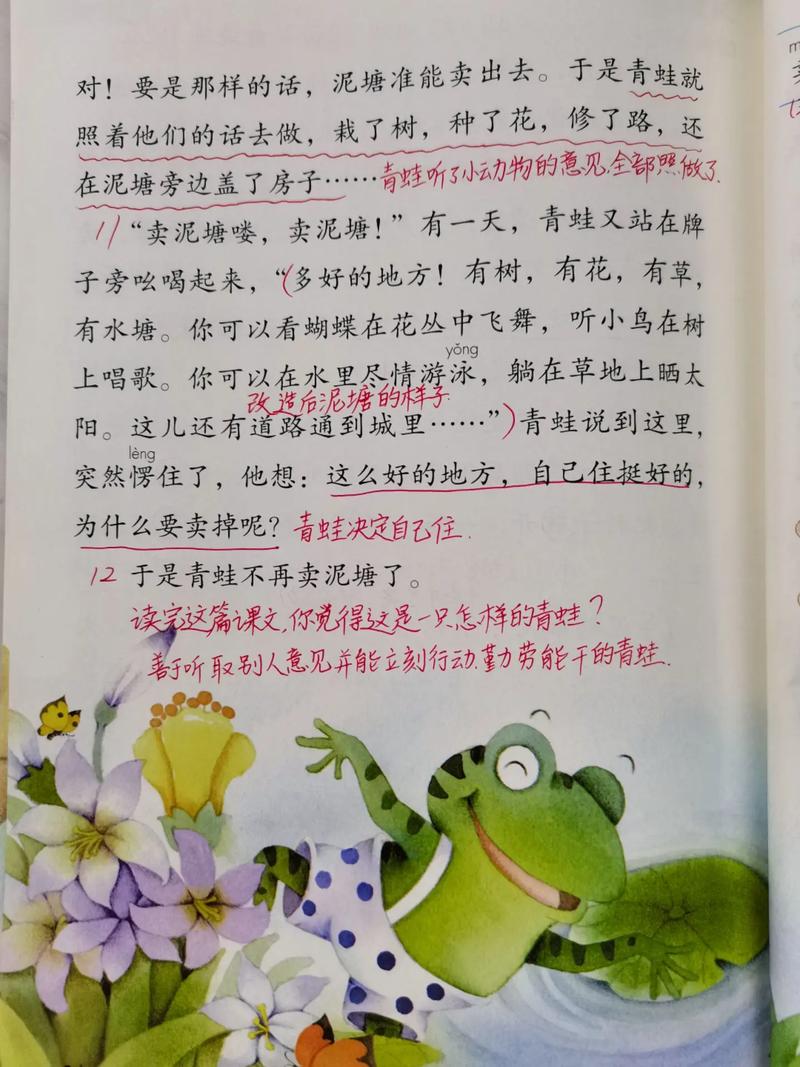 对！要是那样的话，泥塘准能卖出去。于是青蛙就
照着他们的话去做，栽了树，种了花，修了路，还
在泥塘旁边盖了房子……青蛙听了小动物的意见,全部照做了.
11 “卖泥塘喽，卖泥塘！”有一天，青蛙又站在牌
子旁吆喝起来，“(多好的地方！有树，有花，有草，
有水塘。你可以看蝴蝶在花丛中飞舞，听小鸟在树
yǒng
上唱歌。你可以在水里尽情游泳，躺在草地上晒太
改造后泥塘的样子
阳。这儿还有道路通到城里……”)青蛙说到这里，
lèng
突然愣住了，他想：这么好的地方，自己住挺好的，
为什么要卖掉呢？青蛙决定自己住.
12 于是青蛙不再卖泥塘了。
读完这篇课文,你觉得这是一只怎样的青蛙？
善于听取别人意见并能立刻行动.勤劳能干的青蛙.